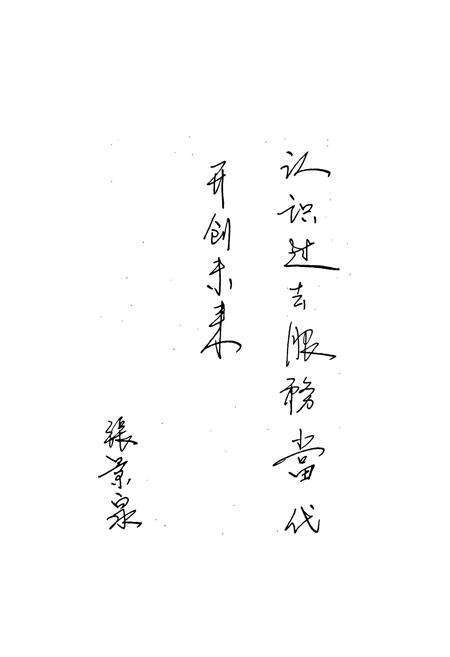 认识过去服务當代
开创未来
張景泉